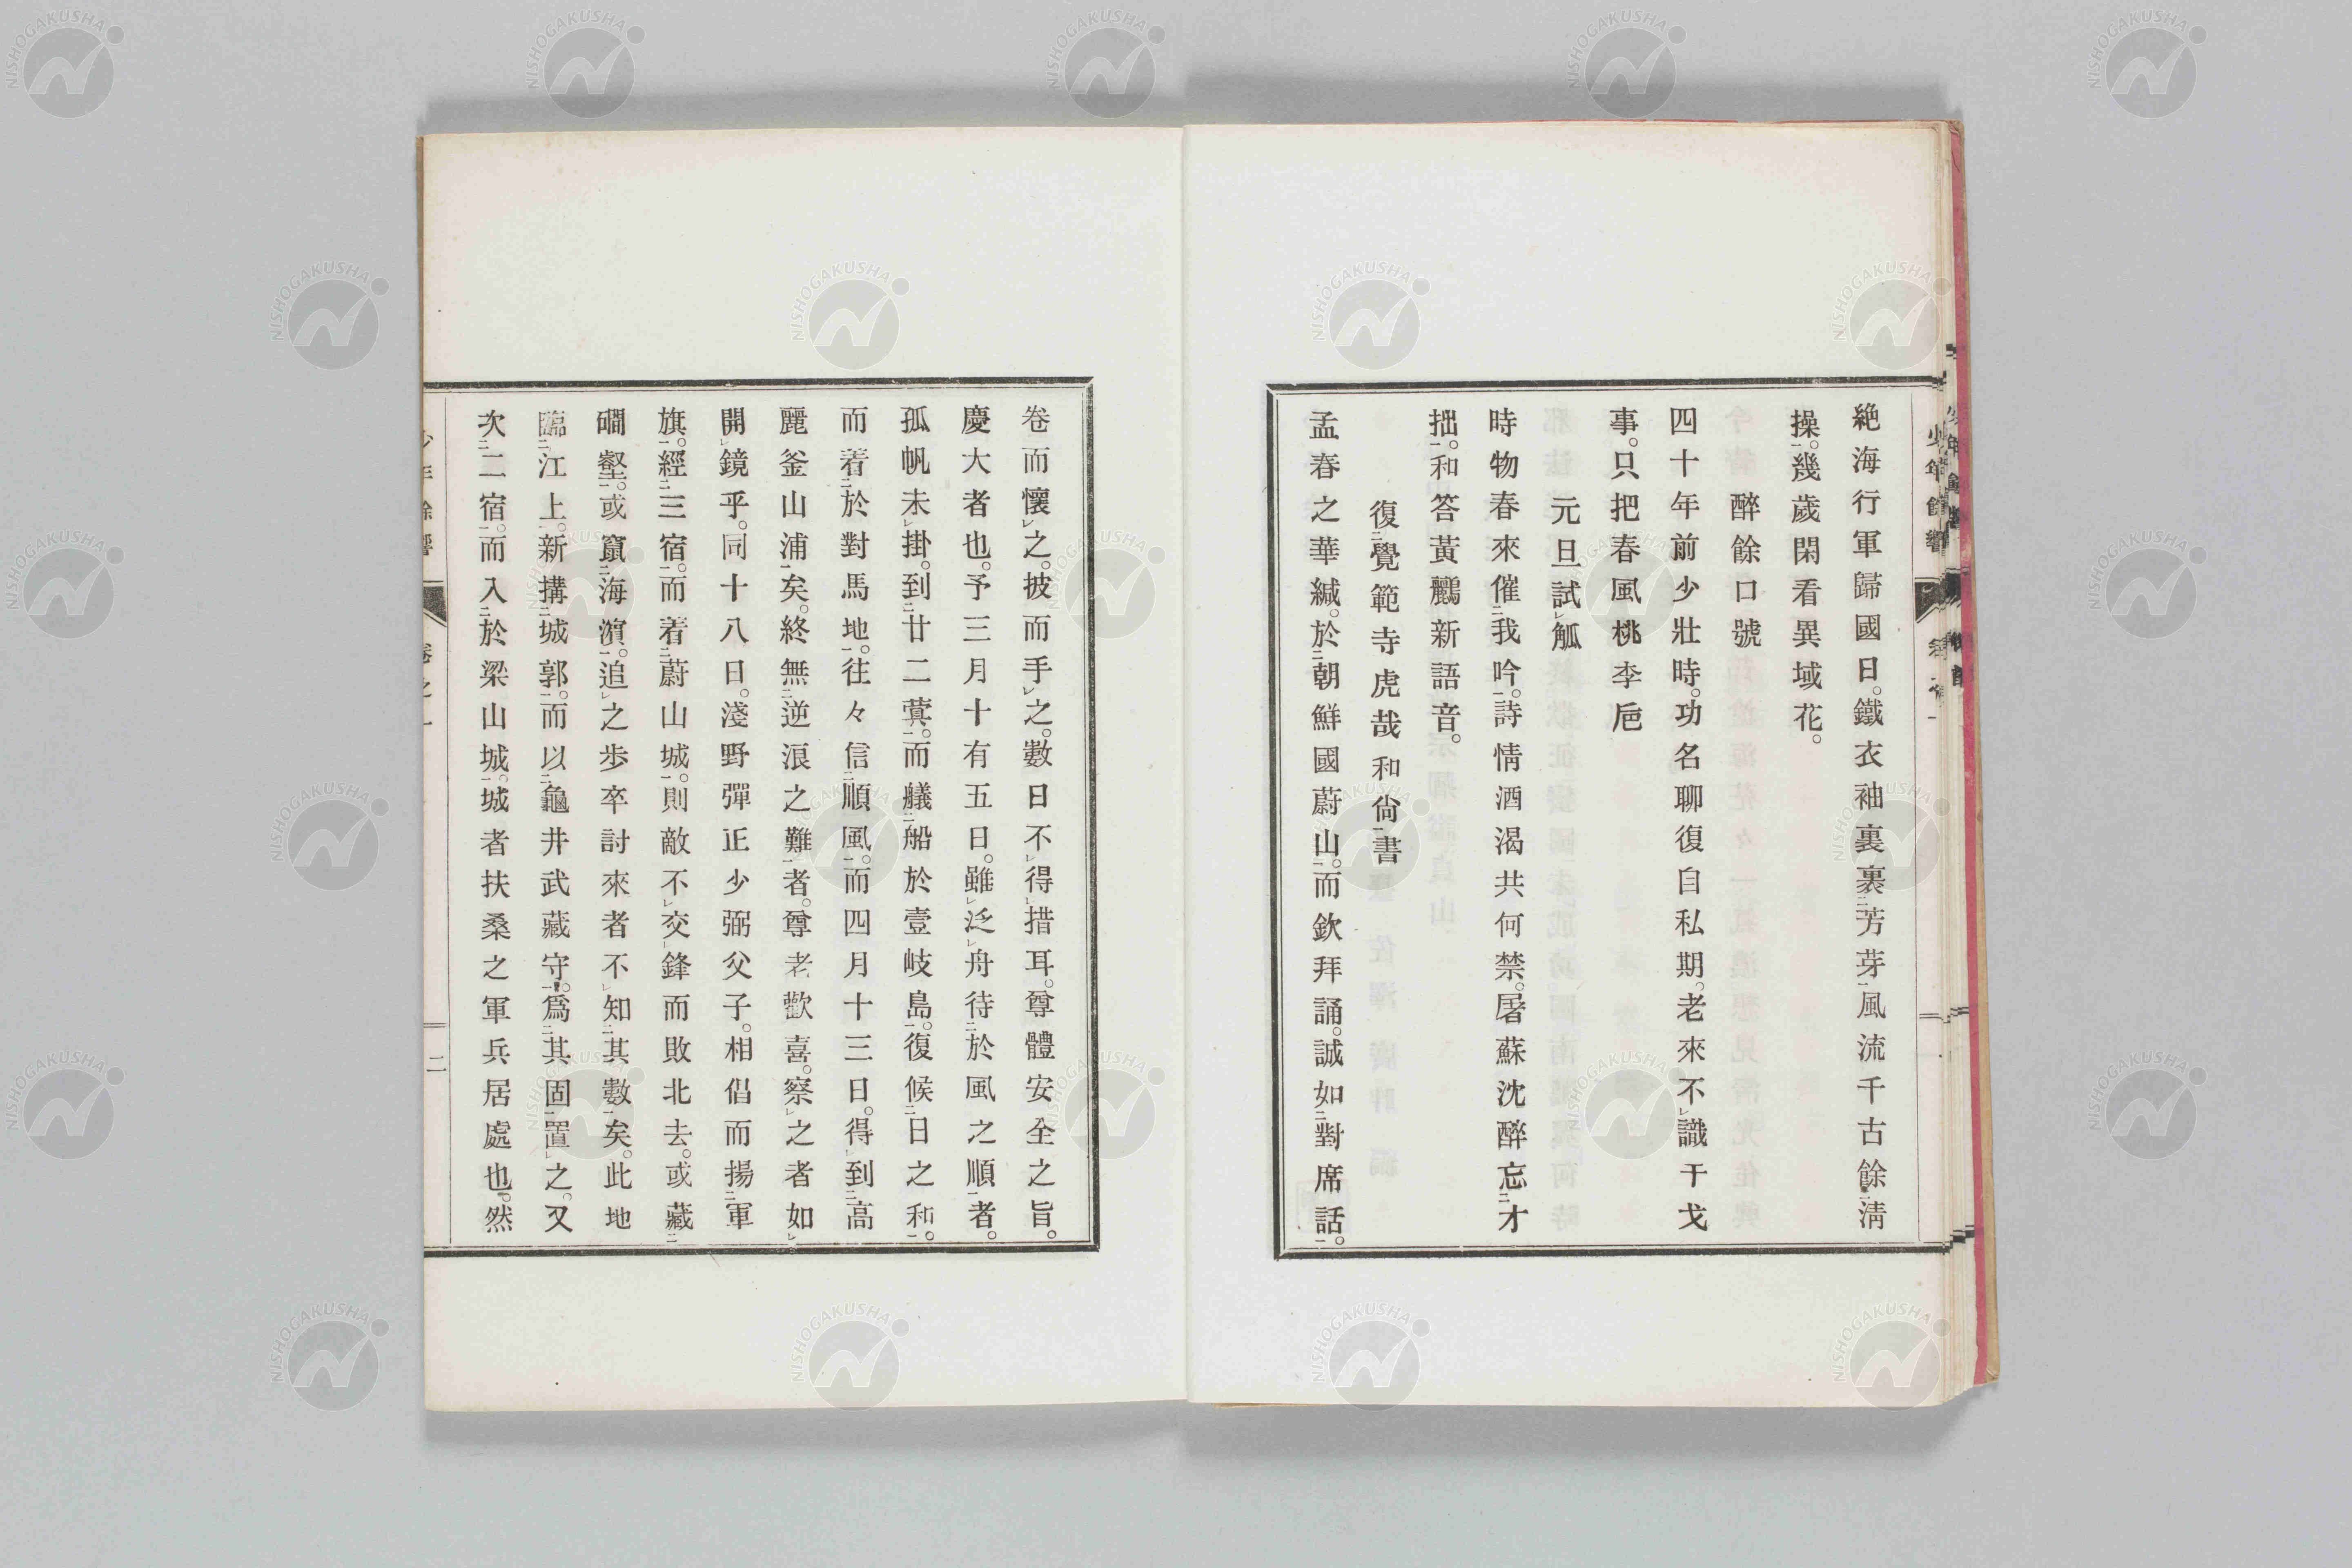 絶海行軍歸國日。鐵衣袖裏裹芳芽風流千古餘淸
操。幾歲閑看異域花。
醉餘口號
四十年前少壯時。功名聊復自私期。老來不識干戈
事。只把春風桃李巵
元旦試觚
時物春來催我吟。詩情酒渴共何禁。屠蘇沈醉忘才
拙。和答黃鸝新語音。
復覺範寺虎哉和尙書
孟春之華緘。於朝鮮國蔚山。而欽拜誦。誠如對席話。
卷而懷之。披而手之。數日不得措耳。尊體安全之旨。
慶大者也。予三月十有五日。雖泛舟待於風之順者。
孤帆未掛。到廿二蓂。而艤船於壹岐島。復候日之和。
而着於對馬地。往々信順風。而四月十三日。得到高
麗釜山浦矣。終無逆浪之難者。尊老歡喜。察之者如
開鏡乎。同十八日。淺野彈正少弼父子。相倡而揚軍
旗。經三宿。而着蔚山城。則敵不交鋒而敗北去。或藏
磵壑。或竄海濵。追之步卒討來者不知其數矣。此地
臨江上。新搆城郭。而以龜井武藏守。爲其固置之。又
次二宿。而入於梁山城。城者扶桑之軍兵居處也。然
少年餘響
卷之一
二
NISHOGAKUSHA